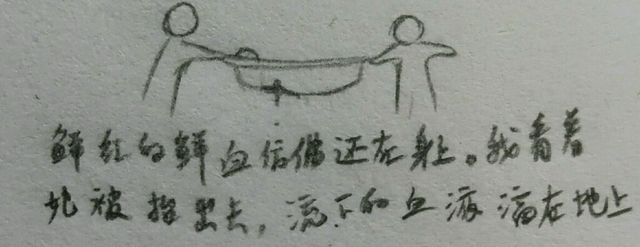 鲜红的鲜血仿佛还在身上。我看着
她被抬出去，流下的血液滴在地上